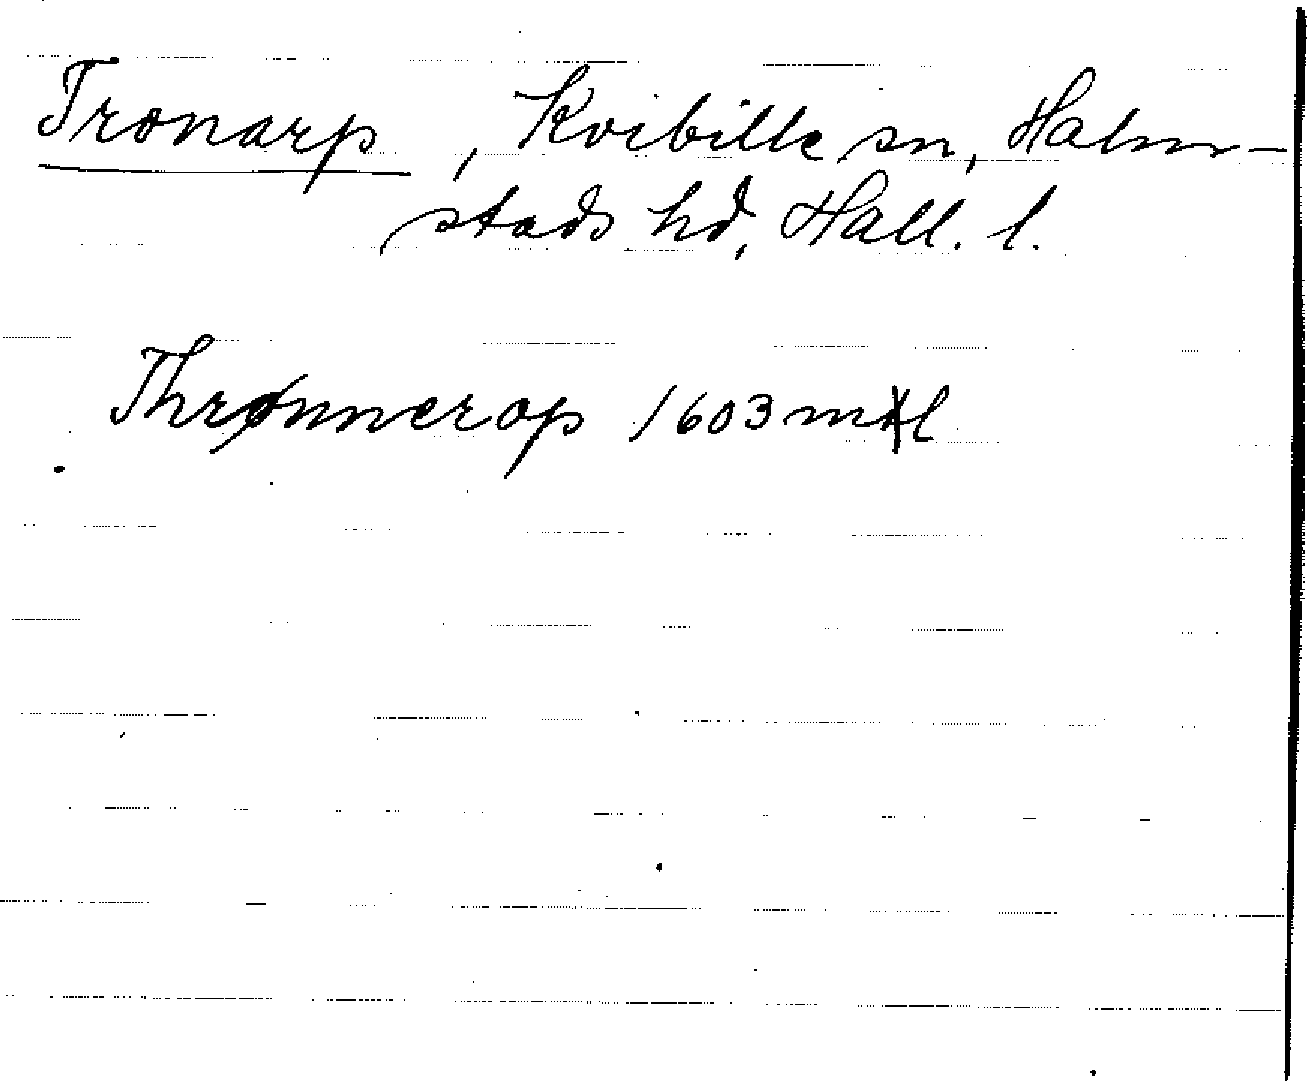 Tronarp, Kvibille sn, Halm-
stads hd, Hall. l.
Thrønnerop 1603 mtl